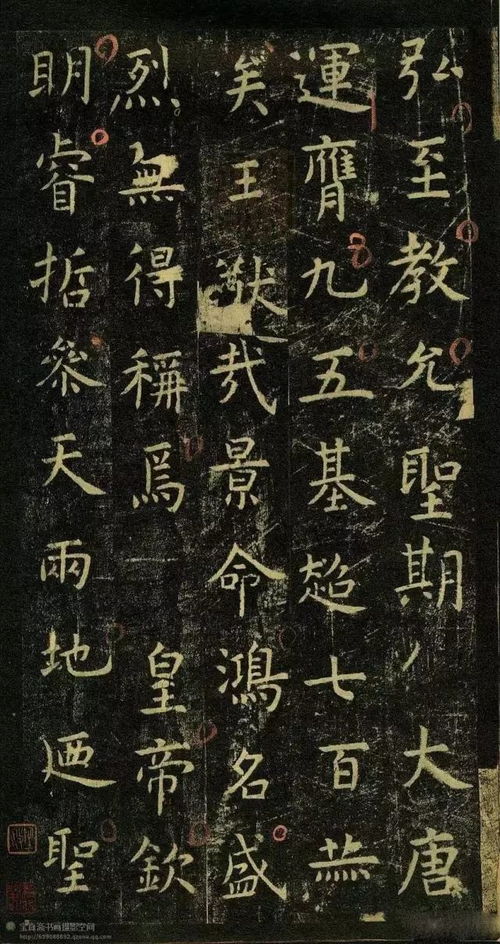 弘至教允聖期大唐
運膺九五基超七百燕
矣王猷哉景命鴻名盛
烈無得稱焉皇帝欽
明睿哲參天兩地迺聖